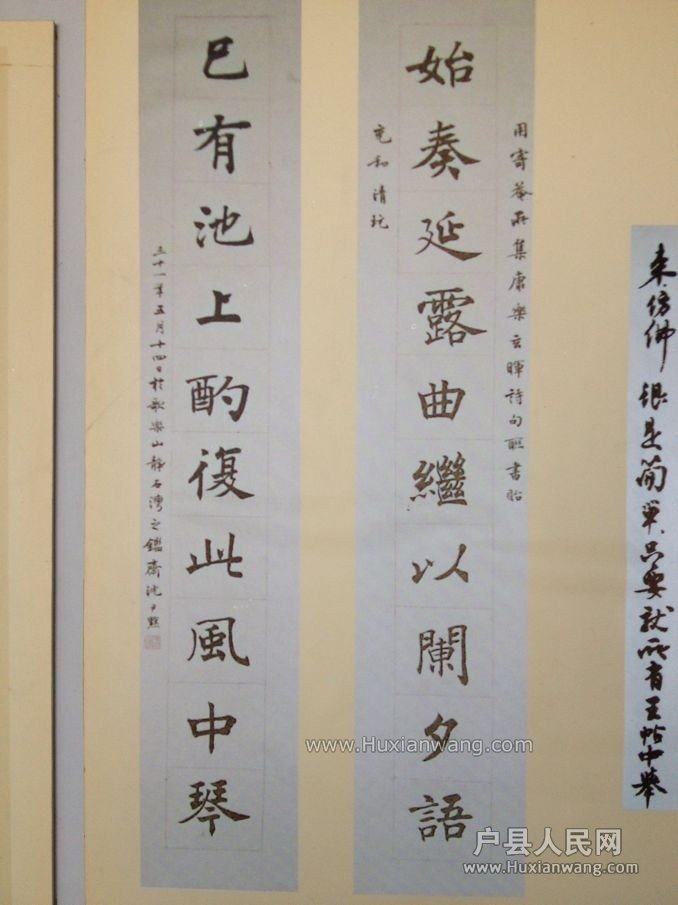 来仿佛 很是简單只要就所有王帖中举
用寄菴所集康樂玄暉詩句聯書貽
始奏延露曲繼以闌夕語
充和清玩
已有池上酌復此風中琴
三十一年五月十四日於歌樂山靜石灣之鑑齋沈尹默
www.Huxianwang.com
户县人民网
www.Huxianwang.com